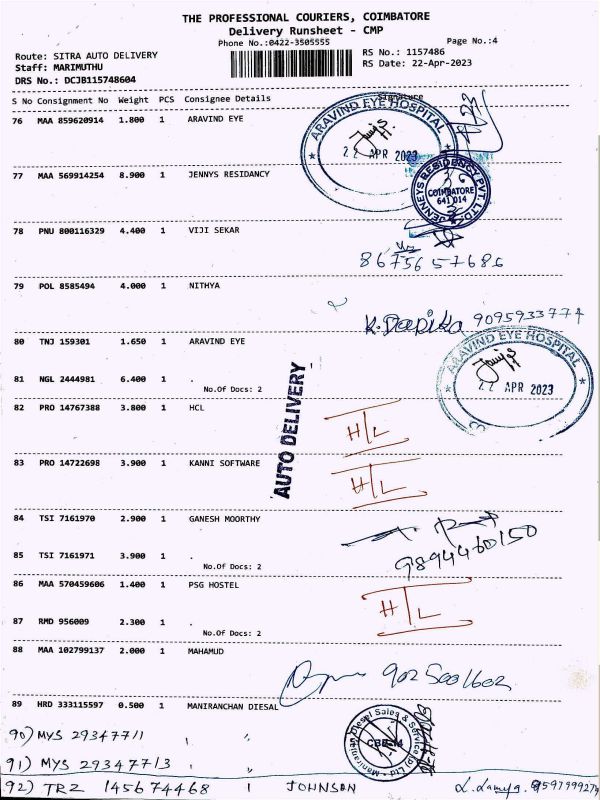 THE PROFESSIONAL COURIERS, COIMBATORE
Delivery Runsheet - CMP
Phone No.:0422-3505555
Page No.:4
Route: SITRA AUTO DELIVERY
RS No.: 1157486
Staff: MARIMUTHU
RS Date: 22-Apr-2023
DRS No.: DCJB115748604
S No Consignment No Weight PCS Consignee Details Signature
76 MAA 859620914 1.800 1 ARAVIND EYE
ARAVIND EYE HOSPITAL
22 APR 2023
77 MAA 569914254 8.900 1 JENNYS RESIDANCY
JENNEYS RESIDENCY PVT. LTD.
COIMBATORE
641 014
78 PNU 800116329 4.400 1 VIJI SEKAR
8675657686
79 POL 8585494 4.000 1 NITHYA
K. Deepika 9095933774
80 TNJ 159301 1.650 1 ARAVIND EYE
ARAVIND EYE HOSPITAL
22 APR 2023
81 NGL 2444981 6.400 1 .
No.Of Docs: 2
AUTO DELIVERY
82 PRO 14767388 3.800 1 HCL
H/L
83 PRO 14722698 3.900 1 KANNI SOFTWARE
H/L
84 TSI 7161970 2.900 1 GANESH MOORTHY
9894460150
85 TSI 7161971 3.900 1 .
No.Of Docs: 2
86 MAA 570459606 1.400 1 PSG HOSTEL
H/L
87 RMD 956009 2.300 1 .
No.Of Docs: 2
88 MAA 102799137 2.000 1 MAHAMUD
9025001602
89 HRD 333115597 0.500 1 MANIRANCHAN DIESAL
Diesel Sales & Service (P) Ltd
CBE-14
90) MYS 29347711
91) MYS 29347713
92) TRZ 145674468 1 JOHNSON